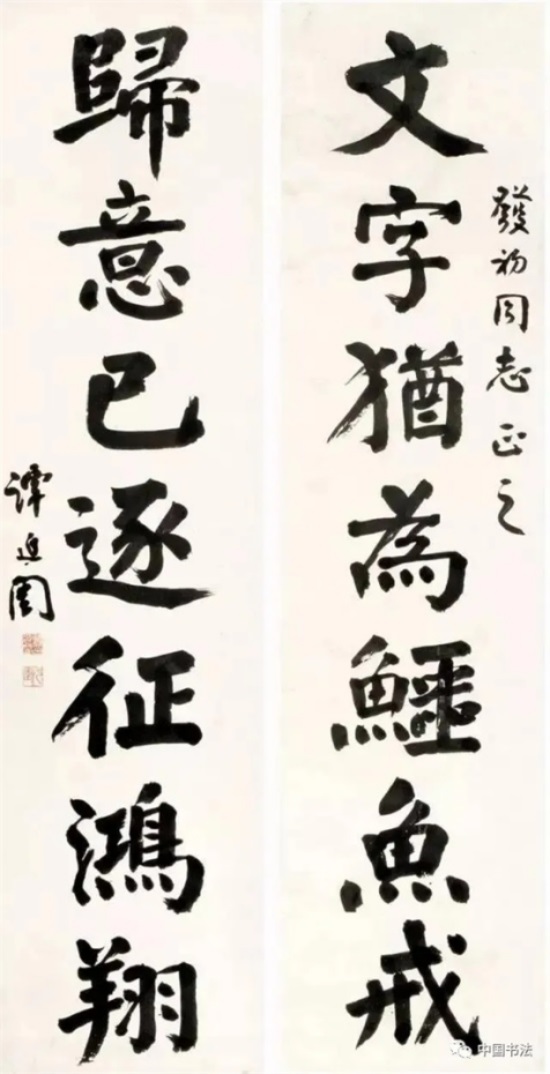 發初同志正之
文字猶為鱷魚戒
歸意已逐征鴻翔
譚延闓
中国书法